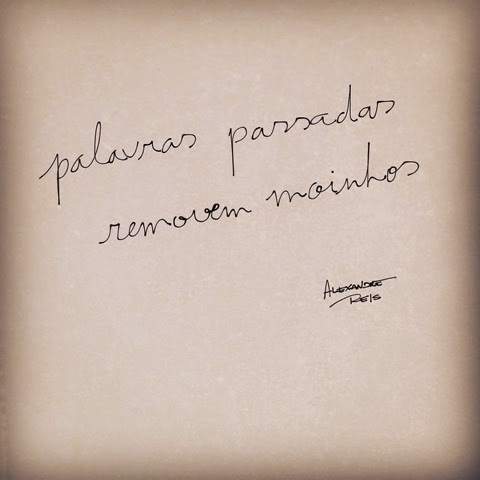 palavras passadas
removem moinhos
Alexandre
Reis